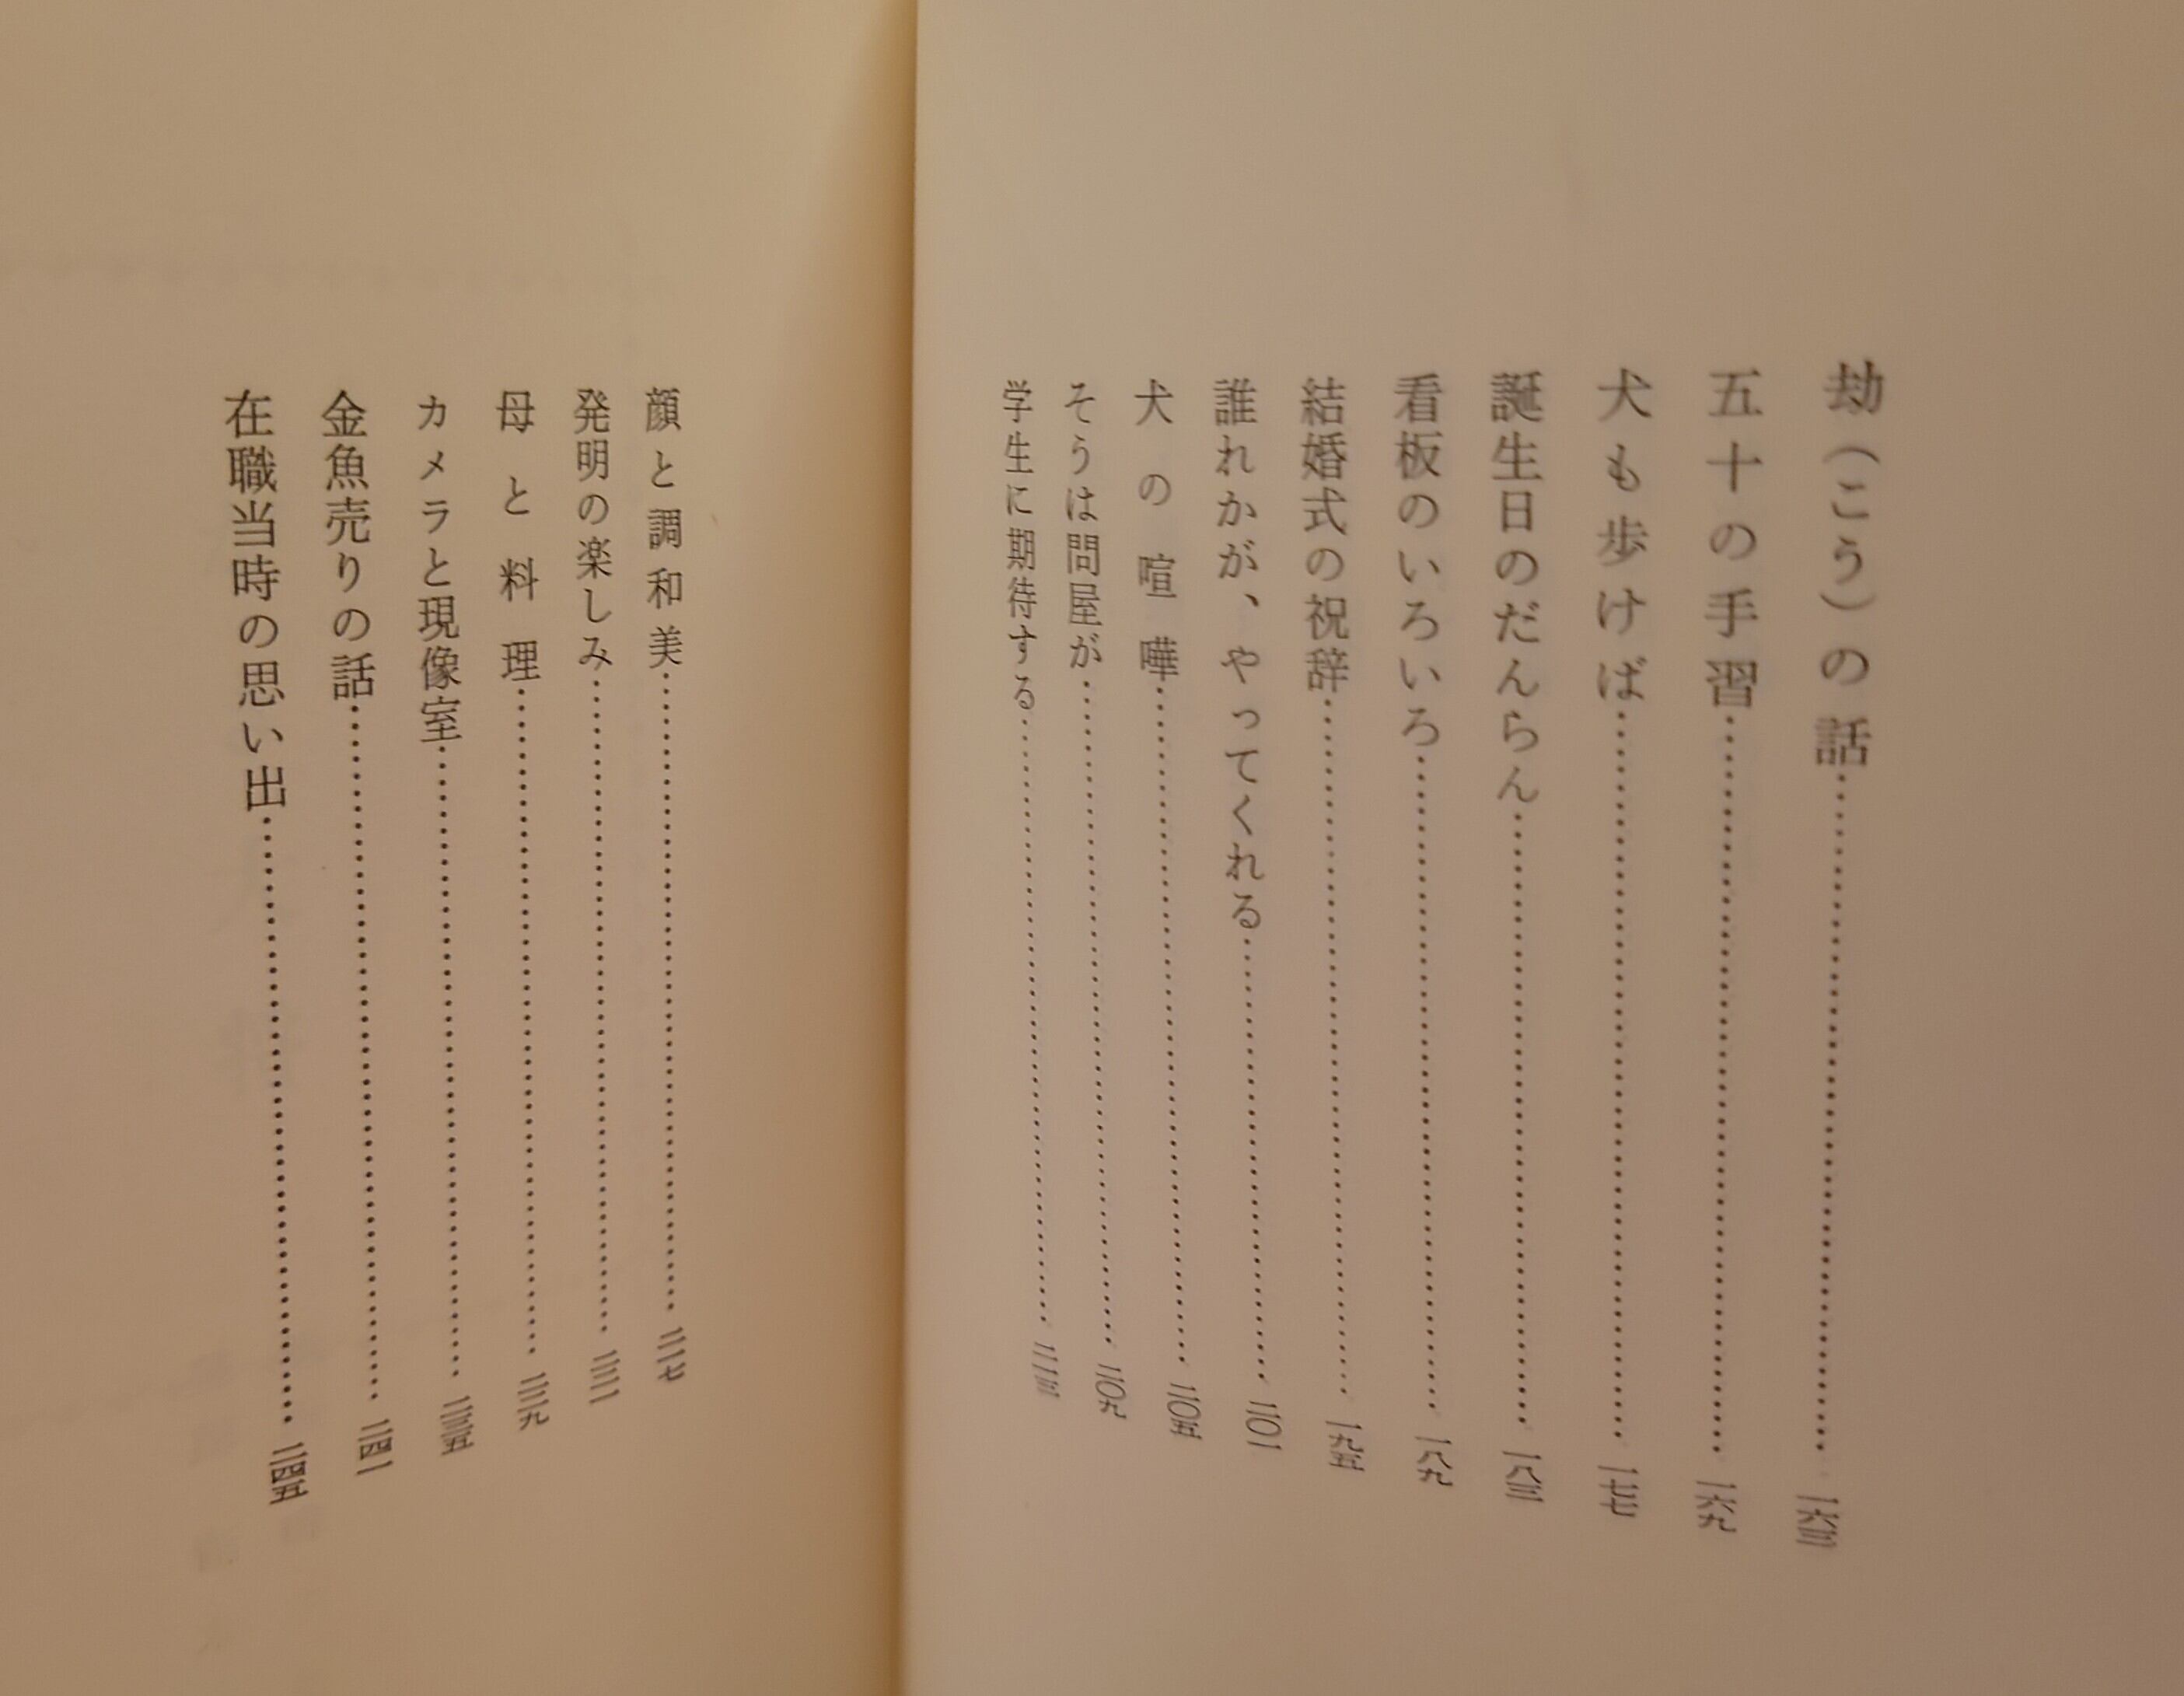 劫(こう)の話…………一六三
五十の手習…………一六九
犬も歩けば…………一七七
誕生日のだんらん…………一八三
看板のいろいろ…………一八九
結婚式の祝辞…………一九五
誰れかが、やってくれる…………二〇一
犬の喧嘩…………二〇五
そうは問屋が…………二〇九
学生に期待する…………二一三
顔と調和美…………二一七
発明の楽しみ…………二二一
母と料理…………二二九
カメラと現像室…………二三五
金魚売りの話…………二四一
在職当時の思い出…………二四五